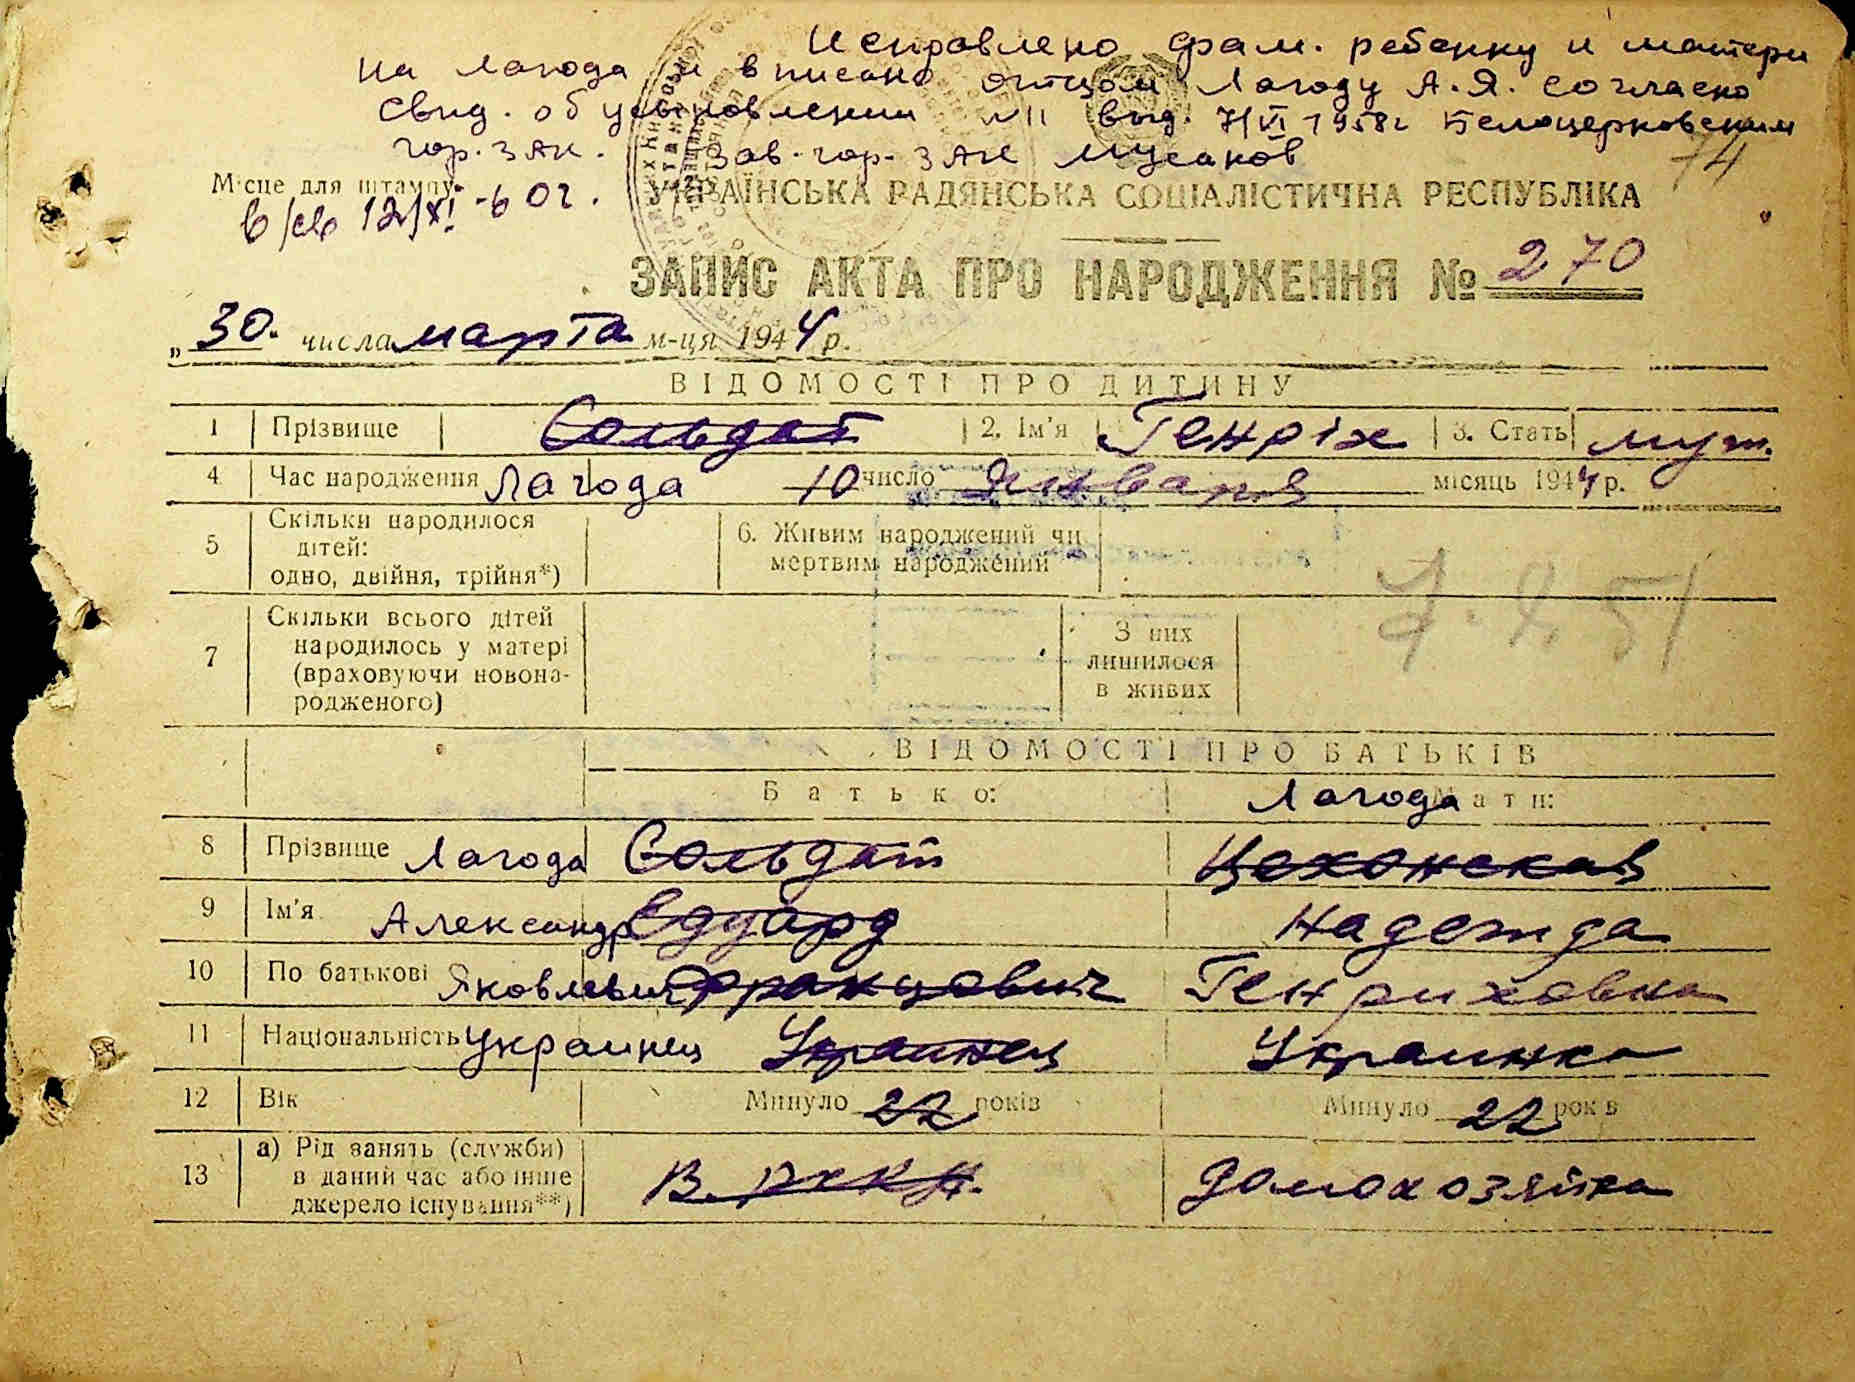 Исправлено фам. ребенку и матери
на Лагода и вписано отцом Лагоду А.Я. согласно
свид. об усыновлении №11 выд. 7/VI 1958г Белоцерковским
гор. ЗАГС. Зав. гор. ЗАГС
74
Місце для штампу
12/XI-60г.
УКРАЇНСЬКА РАДЯНСЬКА СОЦІАЛІСТИЧНА РЕСПУБЛІКА
ЗАПИС АКТА ПРО НАРОДЖЕННЯ № 270
„30" числа марта м-ця 1944 р.
ВІДОМОСТІ ПРО ДИТИНУ
1 Прізвище Сольдат 2. Ім'я Генріх 3. Стать муж.
4 Час народження Лагода 10 число Января місяць 1944 р.
5 Скільки народилося дітей: одно, двійня, трійня*) 6. Живим народжений чи мертвим народжений
7 Скільки всього дітей народилось у матері (враховуючи новонародженого) З них лишилося в живих
ВІДОМОСТІ ПРО БАТЬКІВ
Батько: Лагода Мати:
8 Прізвище Лагода Сольдат Цехонская
9 Ім'я Александр Едуард Надежда
10 По батькові Яковлевич Францович Генриховна
11 Національність Украинец Украинец Украинка
12 Вік Минуло 22 років Минуло 22 років
13 а) Рід занять (служби) в даний час або інше джерело існування**) В. РККА. домохозяйка